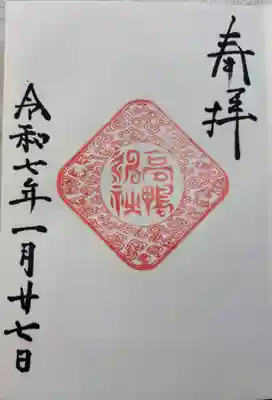 奉拝
高鴨神社
令和七年一月廿七日